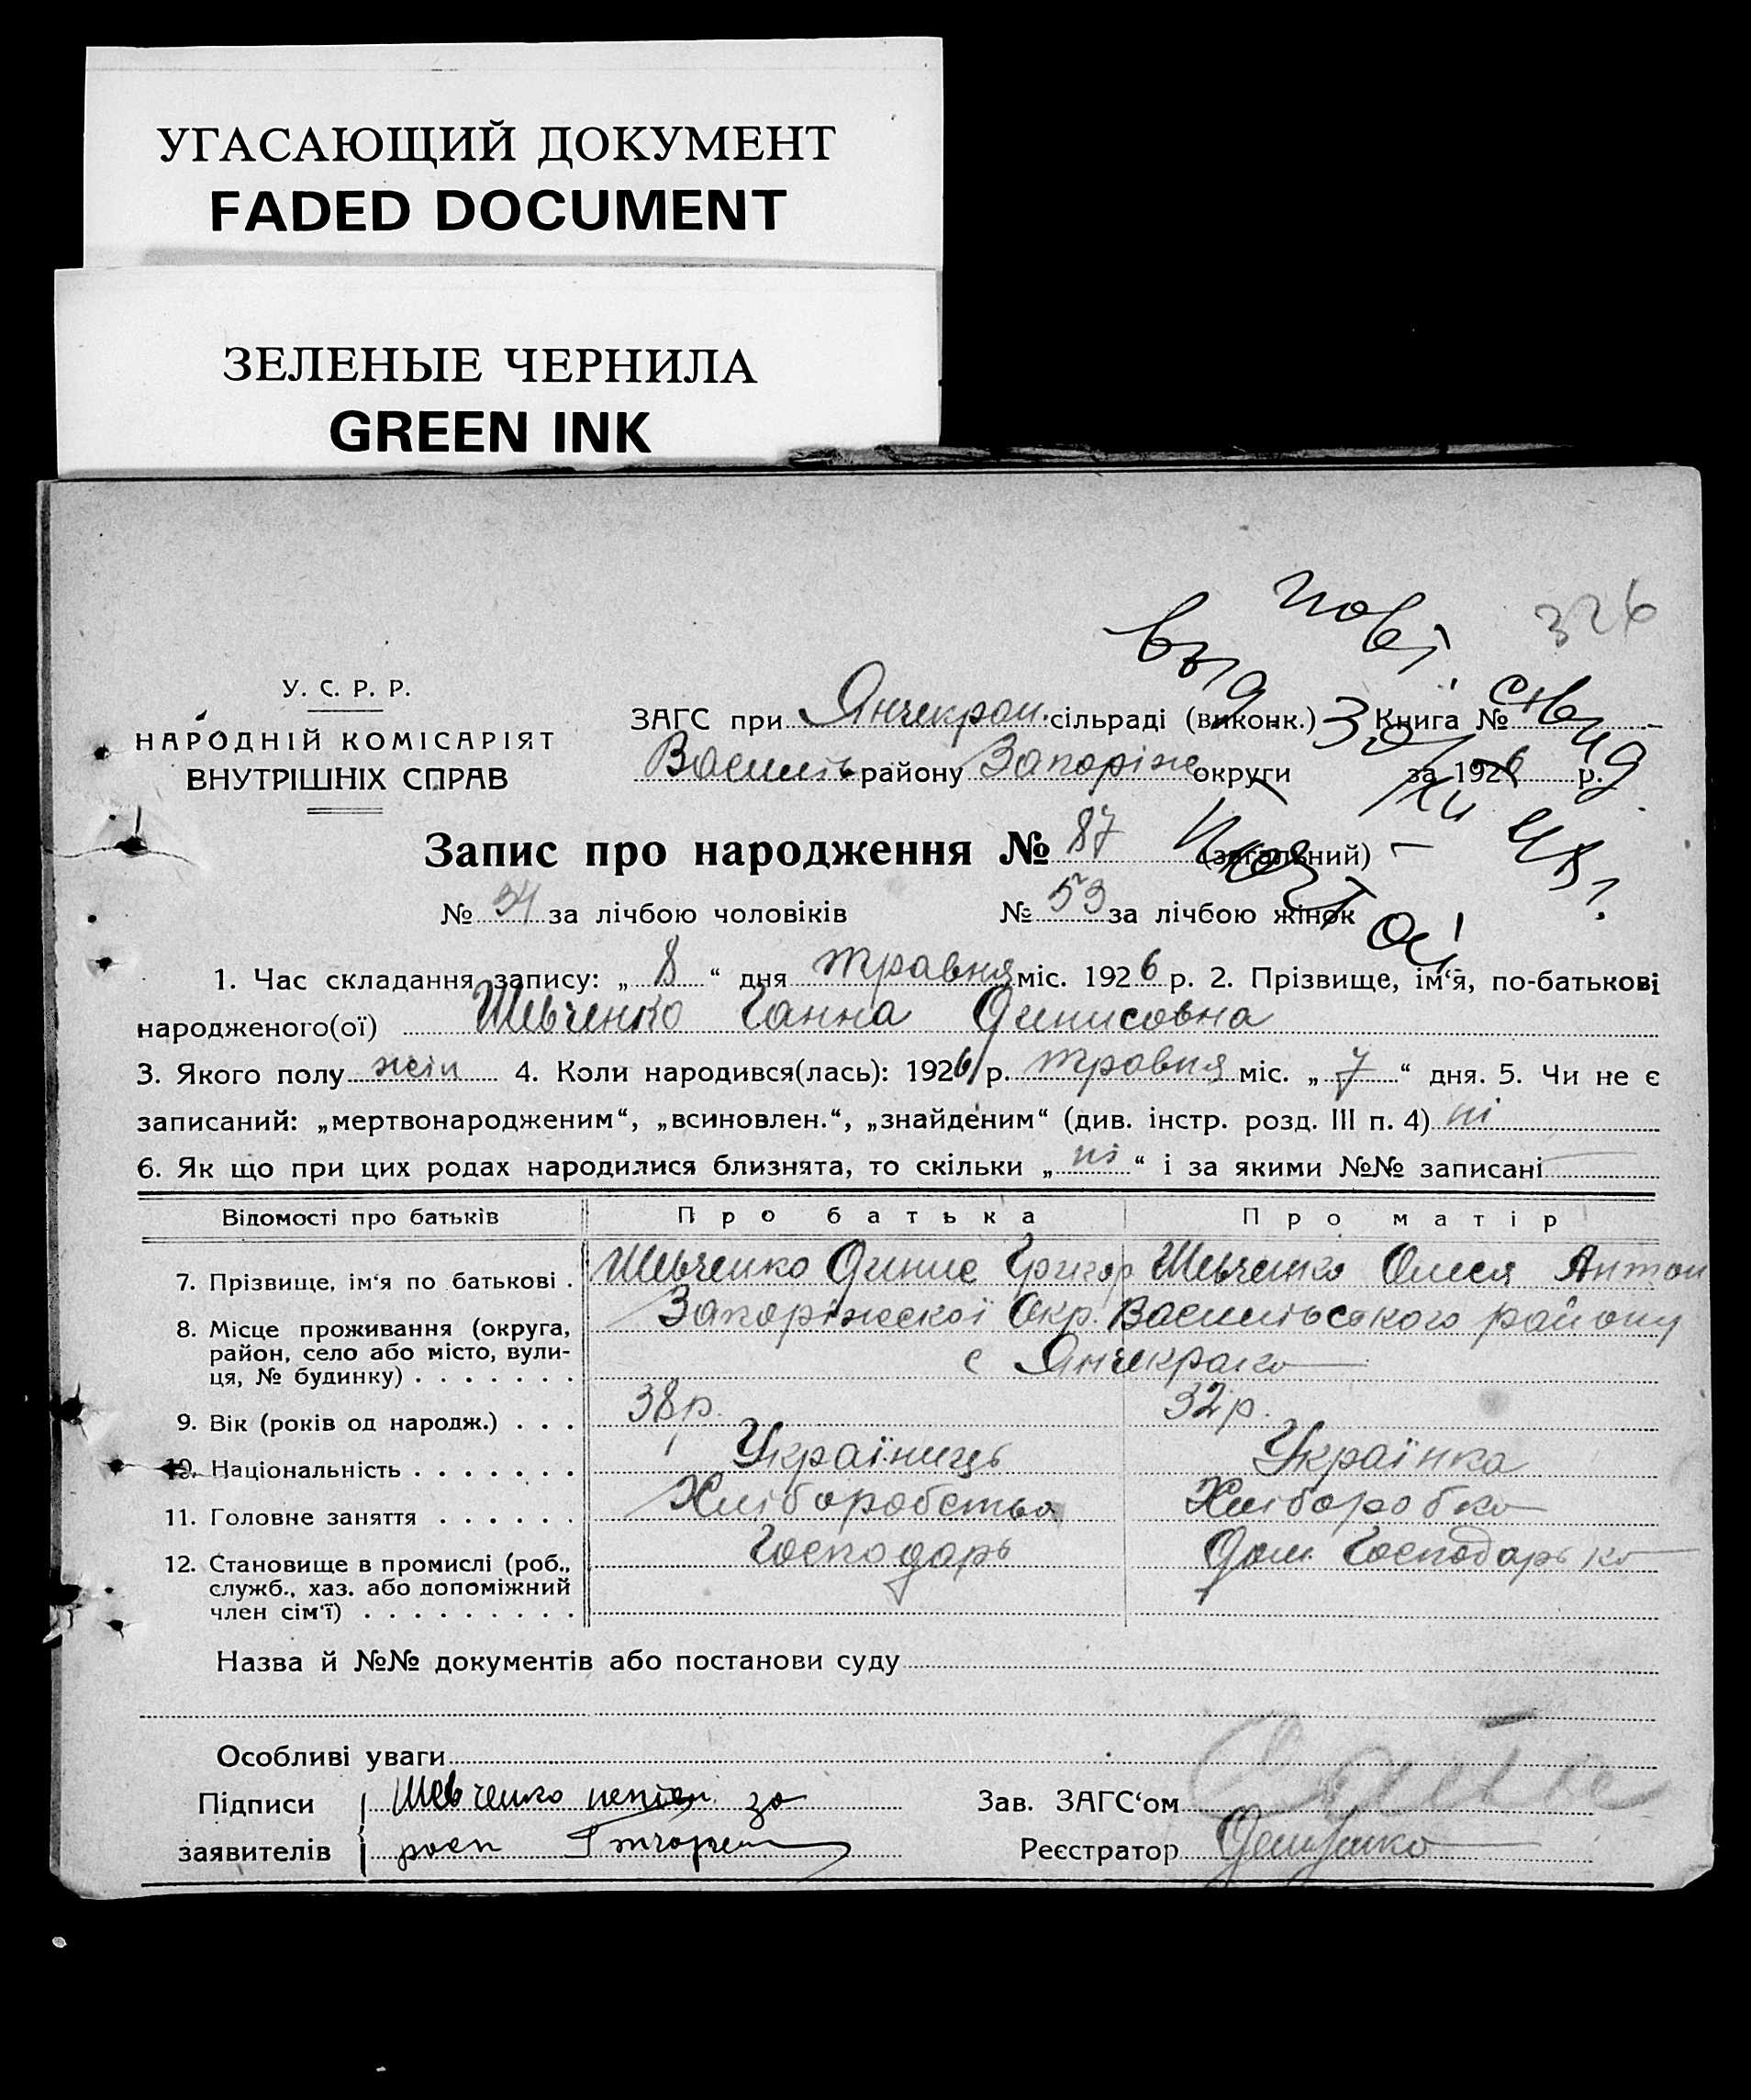 УГАСАЮЩИЙ ДОКУМЕНТ
FADED DOCUMENT
ЗЕЛЕНЫЕ ЧЕРНИЛА
GREEN INK
326
нові свид.
выд. Запи
У. С. Р. Р.
НАРОДНІЙ КОМІСАРІЯТ
ВНУТРІШНІХ СПРАВ
ЗАГС при Янчекрак. сільраді (виконк.) Книга №
Василів району Запоріж округи за 1926 р.
Запис про народження № 87 (загальний)
№ 34 за лічбою чоловіків № 53 за лічбою жінок
1. Час складання запису: „ 8 “ дня травня міс. 1926 р. 2. Прізвище, ім‘я, по-батькові
народженого(ої) Шевченко Ганна Динисовна
3. Якого полу жін 4. Коли народився(лась): 1926 р. травня міс. „ 7 “ дня. 5. Чи не є
записаний: „мертвонародженим“, „всиновлен.“, „знайденим“ (див. інстр. розд. III п. 4) ні
6. Як що при цих родах народилися близнята, то скільки „ ні “ і за якими №№ записані
Відомості про батьків Про батька Про матір
7. Прізвище, ім‘я по батькові . Шевченко Динис Григор Шевченко Олися Антон
8. Місце проживання (округа, район, село або місто, вулиця, № будинку) . . . . . . . Запоріжскої Окр. Васильівського району
с Янчекрако
9. Вік (років од народж.) . . . 38 р. 32 р.
10. Національність . . . . . . . Українець Українка
11. Головне заняття . . . . . . Хліборобство Хліборобка
12. Становище в промислі (роб., служб., хаз. або допоміжний член сім‘ї) . . . . . . . . . Господарь Дом. Господарька
Назва й №№ документів або постанови суду
Особливі уваги
Підписи Шевченко неписм. за Зав. ЗАГС‘ом
заявителів росп Реєстратор